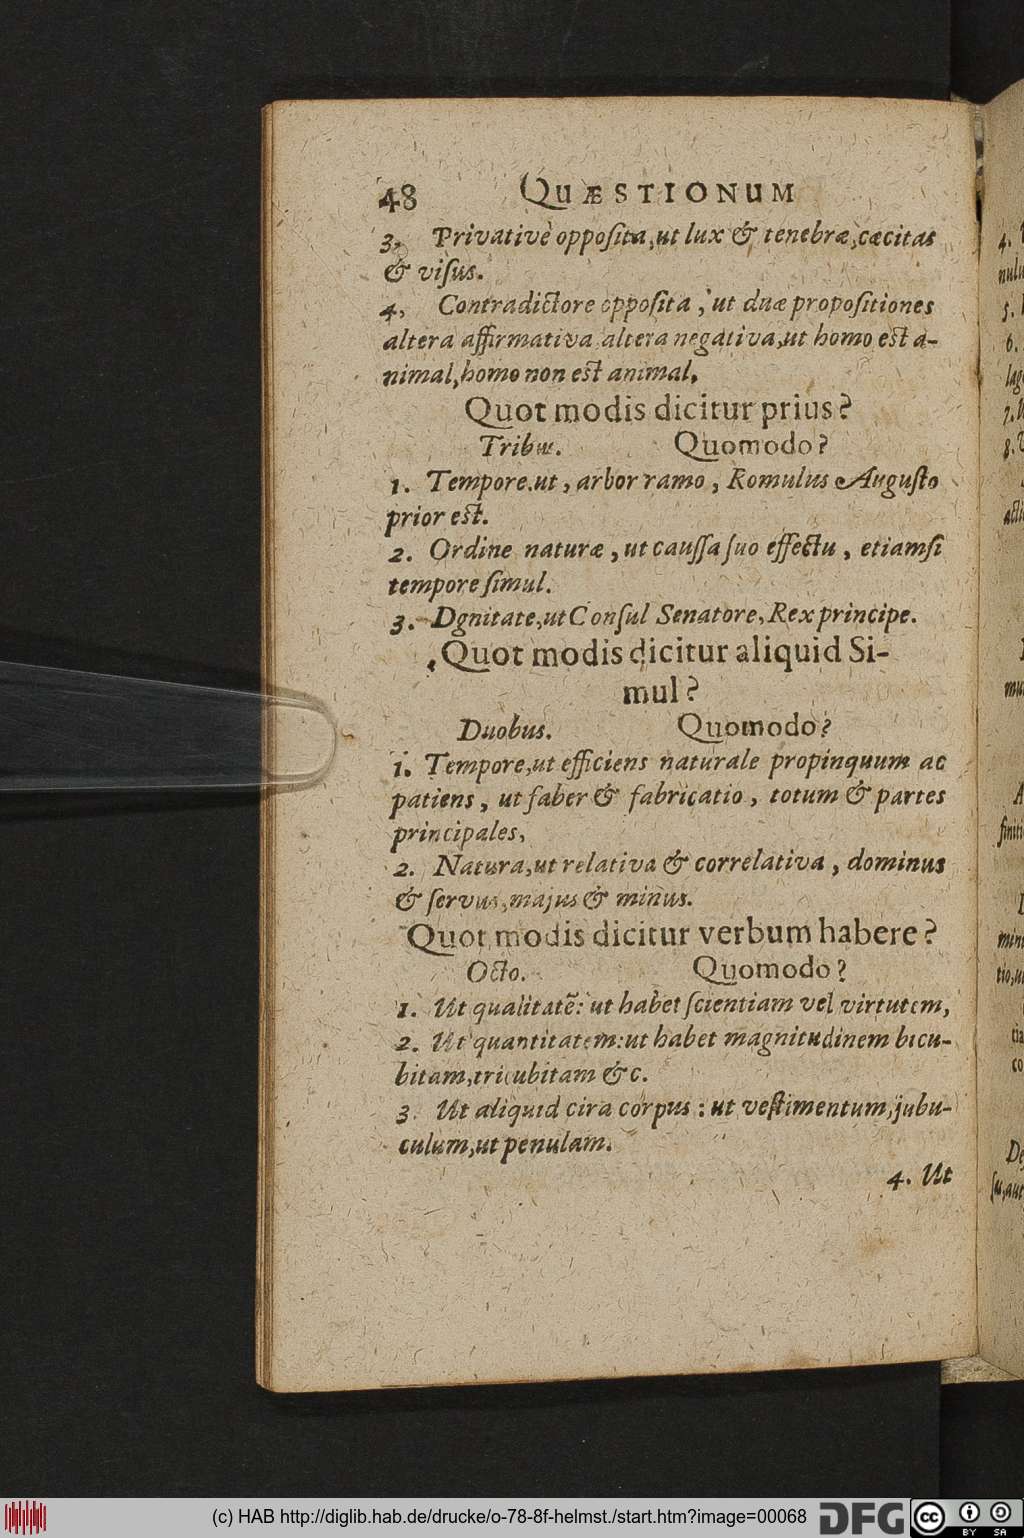 48 QUÆSTIONUM
3. Privativè opposita, ut lux & tenebræ, cæcitas
& visus.
4, Contradictore opposita, ut duæ propositiones
altera affirmativa altera negativa, ut homo est a-
nimal, homo non est animal.
Quot modis dicitur prius?
Tribus. Quomodo?
1. Tempore.ut, arbor ramo, Romulus Augusto
prior est.
2. Ordine naturæ, ut caussa suo effectu, etiamsi
tempore simul.
3. Dgnitate, ut Consul Senatore, Rex principe.
Quot modis dicitur aliquid Si-
mul?
Duobus. Quomodo?
1. Tempore, ut efficiens naturale propinquum ac
patiens, ut faber & fabricatio, totum & partes
principales,
2. Natura, ut relativa & correlativa, dominus
& servus, majus & minus.
Quot modis dicitur verbum habere?
Octo. Quomodo?
1. Ut qualitatē: ut habet scientiam vel virtutem,
2. Ut quantitatem: ut habet magnitudinem bicu-
bitam, tricubitam &c.
3 Ut aliquid cira corpus: ut vestimentum, jubu-
culum, ut penulam.
4. Ut
(c) HAB http://diglib.hab.de/drucke/o-78-8f-helmst./start.htm?image=00068
DFG
cc
BY SA